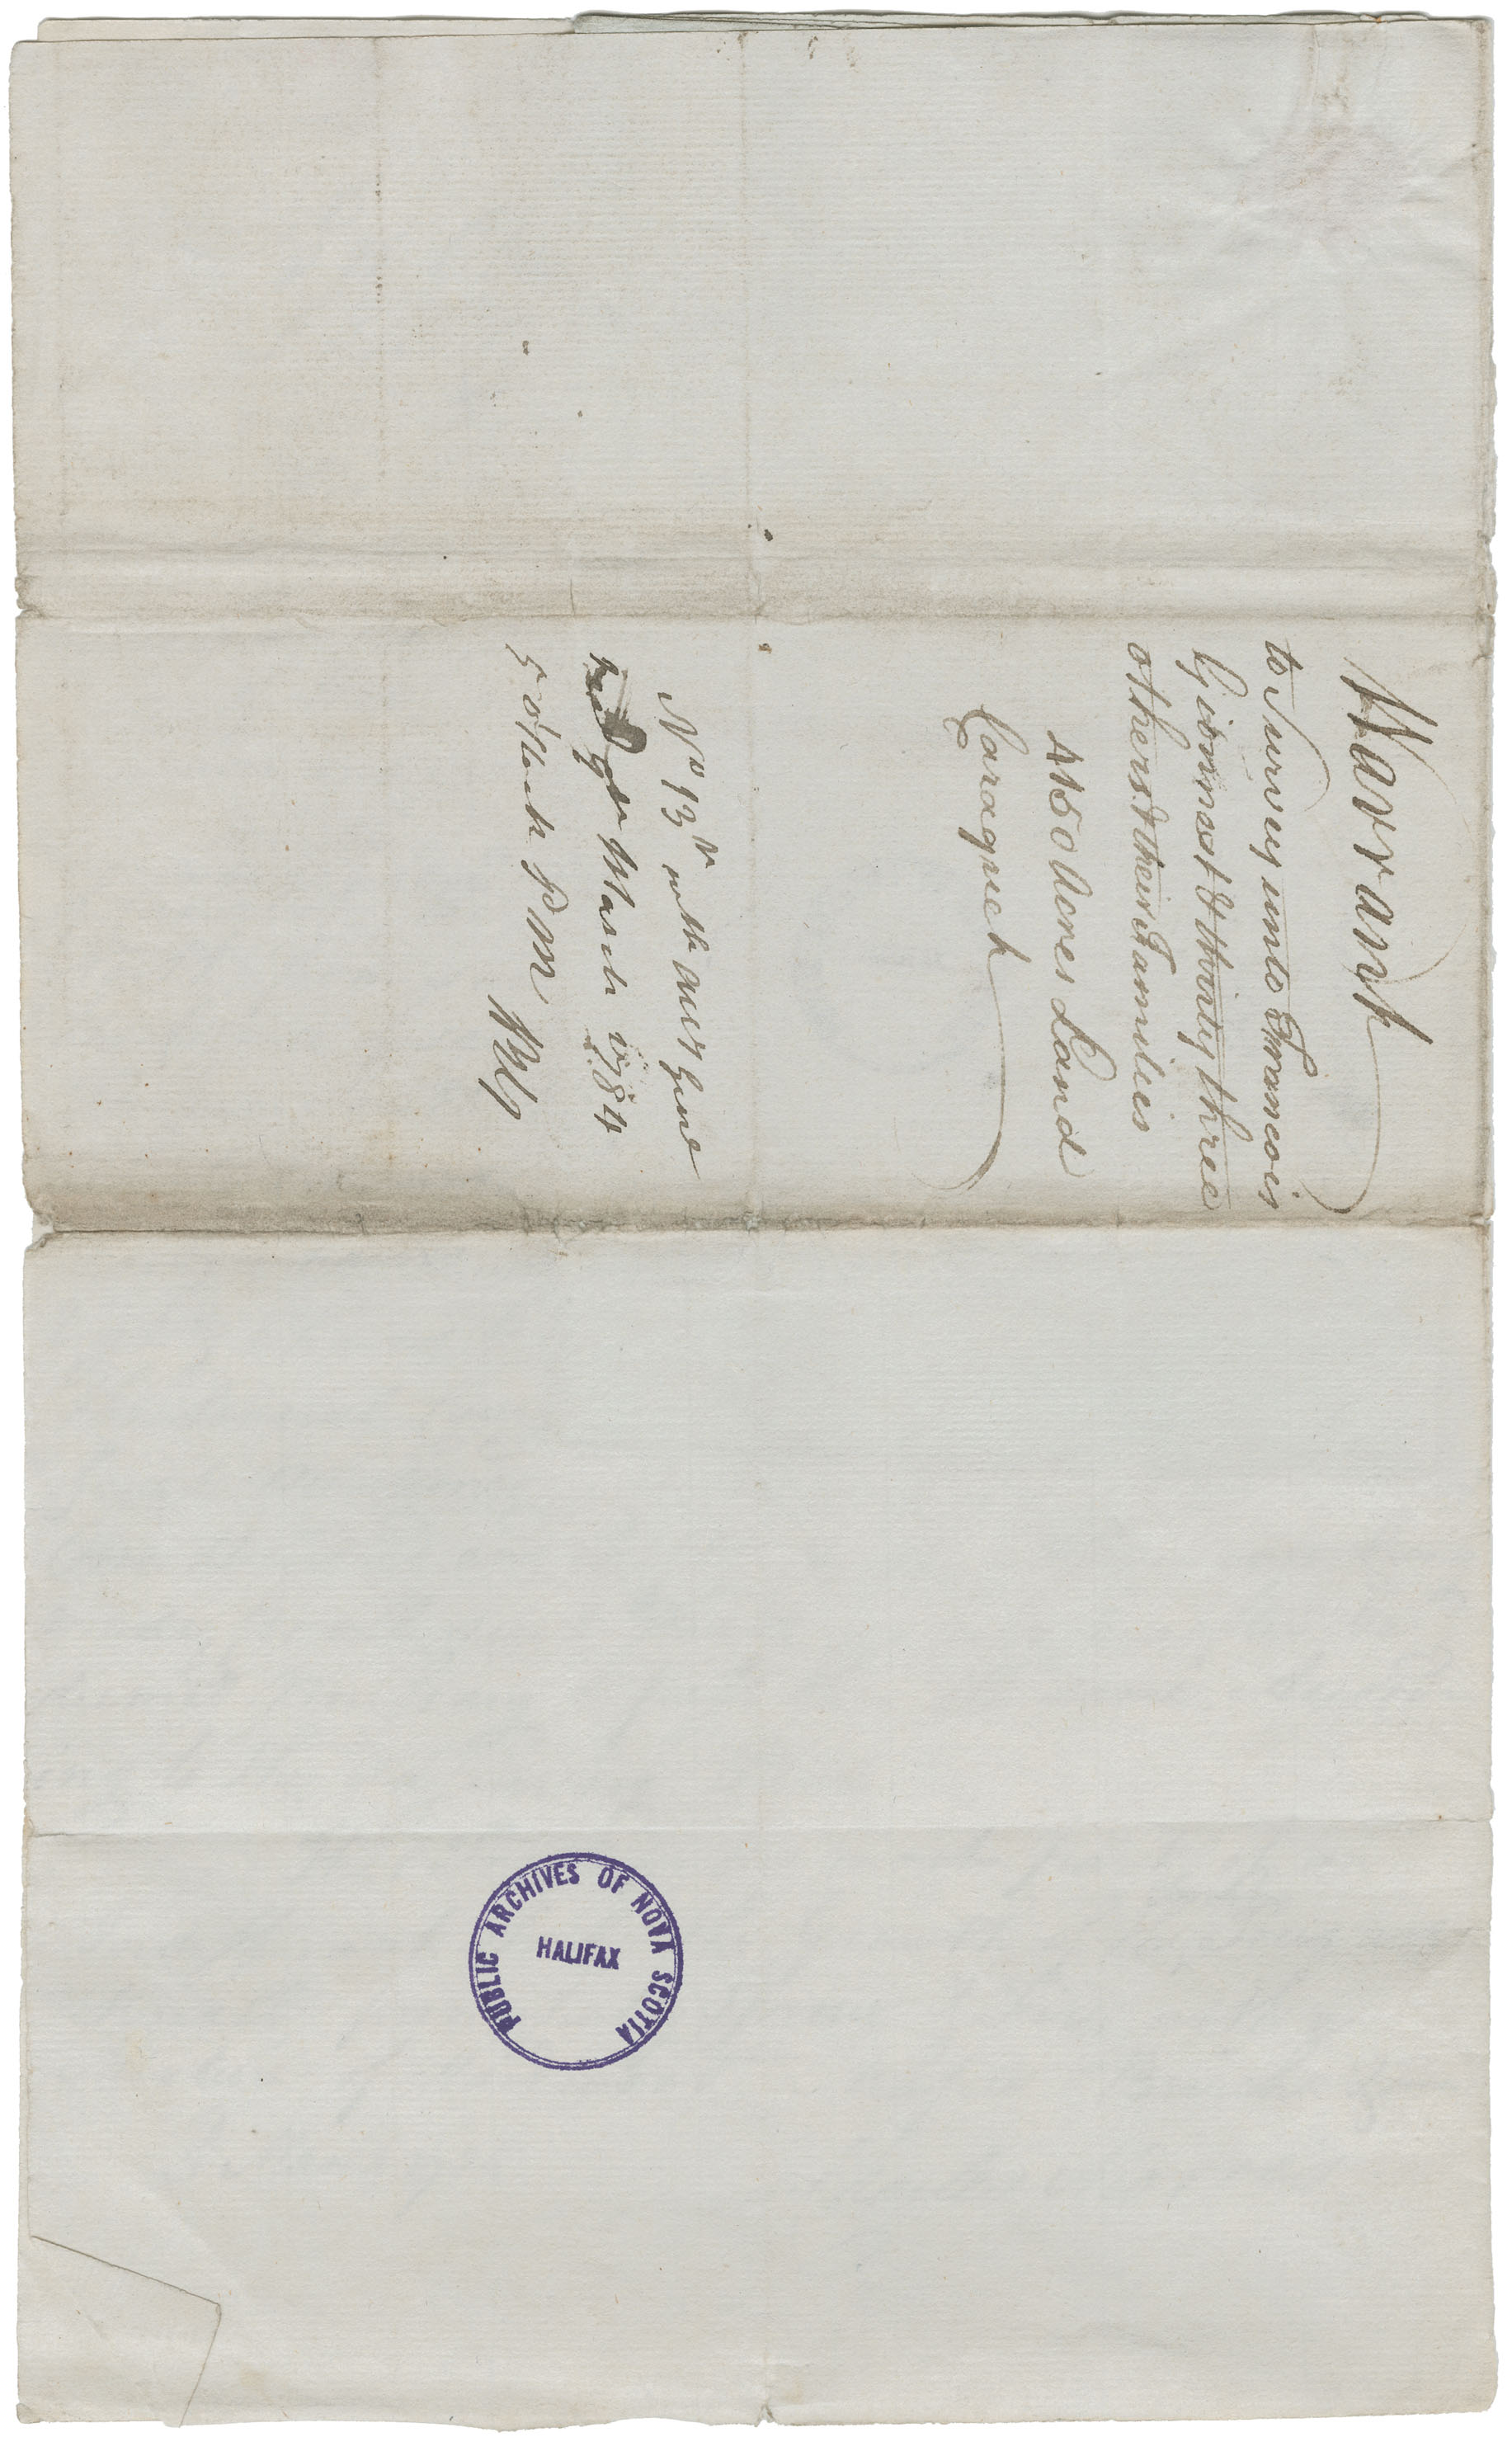 Warrant
to Survey unto Francois
Gionnest & thirty three
others & their Families
4150 Acres Land
Caraquet
No 13
March 1784
5 oClock P M
PUBLIC ARCHIVES OF NOVA SCOTIA
HALIFAX